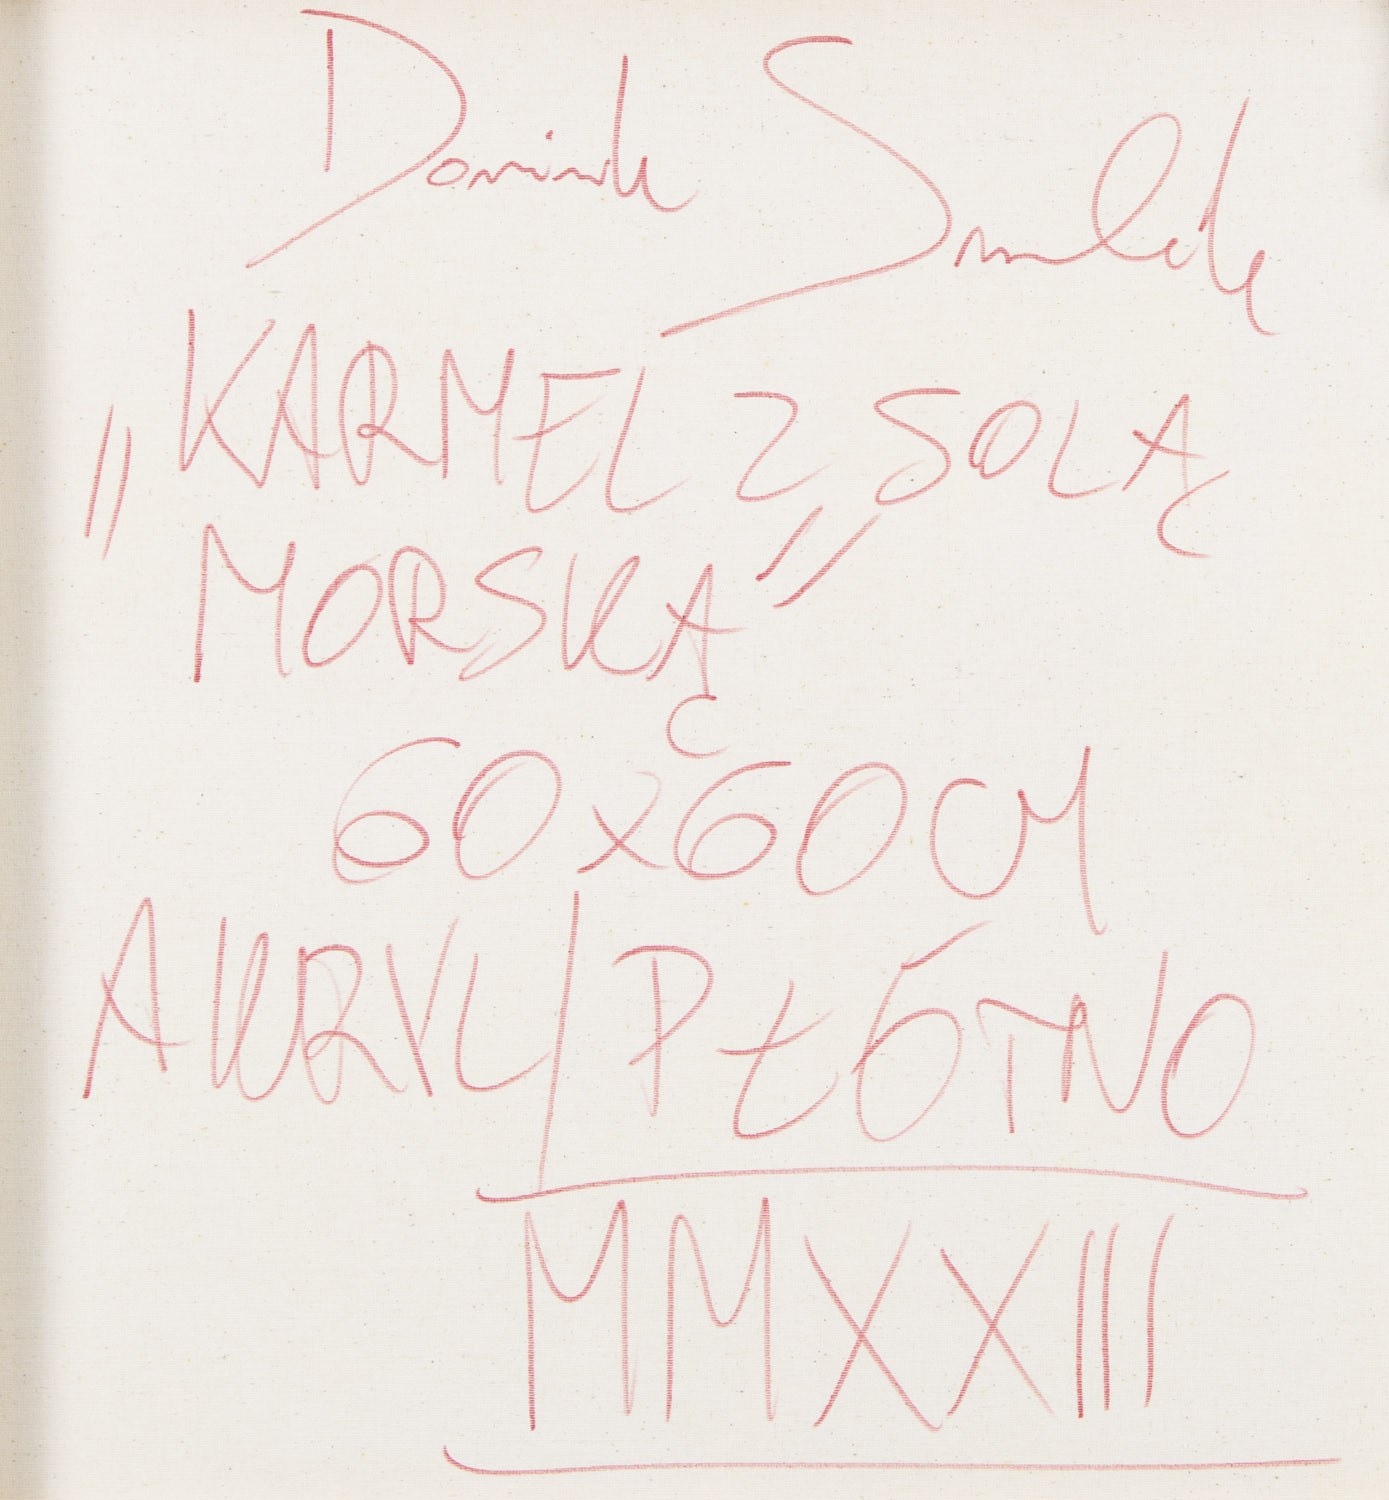 Dominik Smolik
„KARMEL Z SOLĄ
MORSKĄ”
60x60CM
AKRYL/PŁÓTNO
MMXXIII